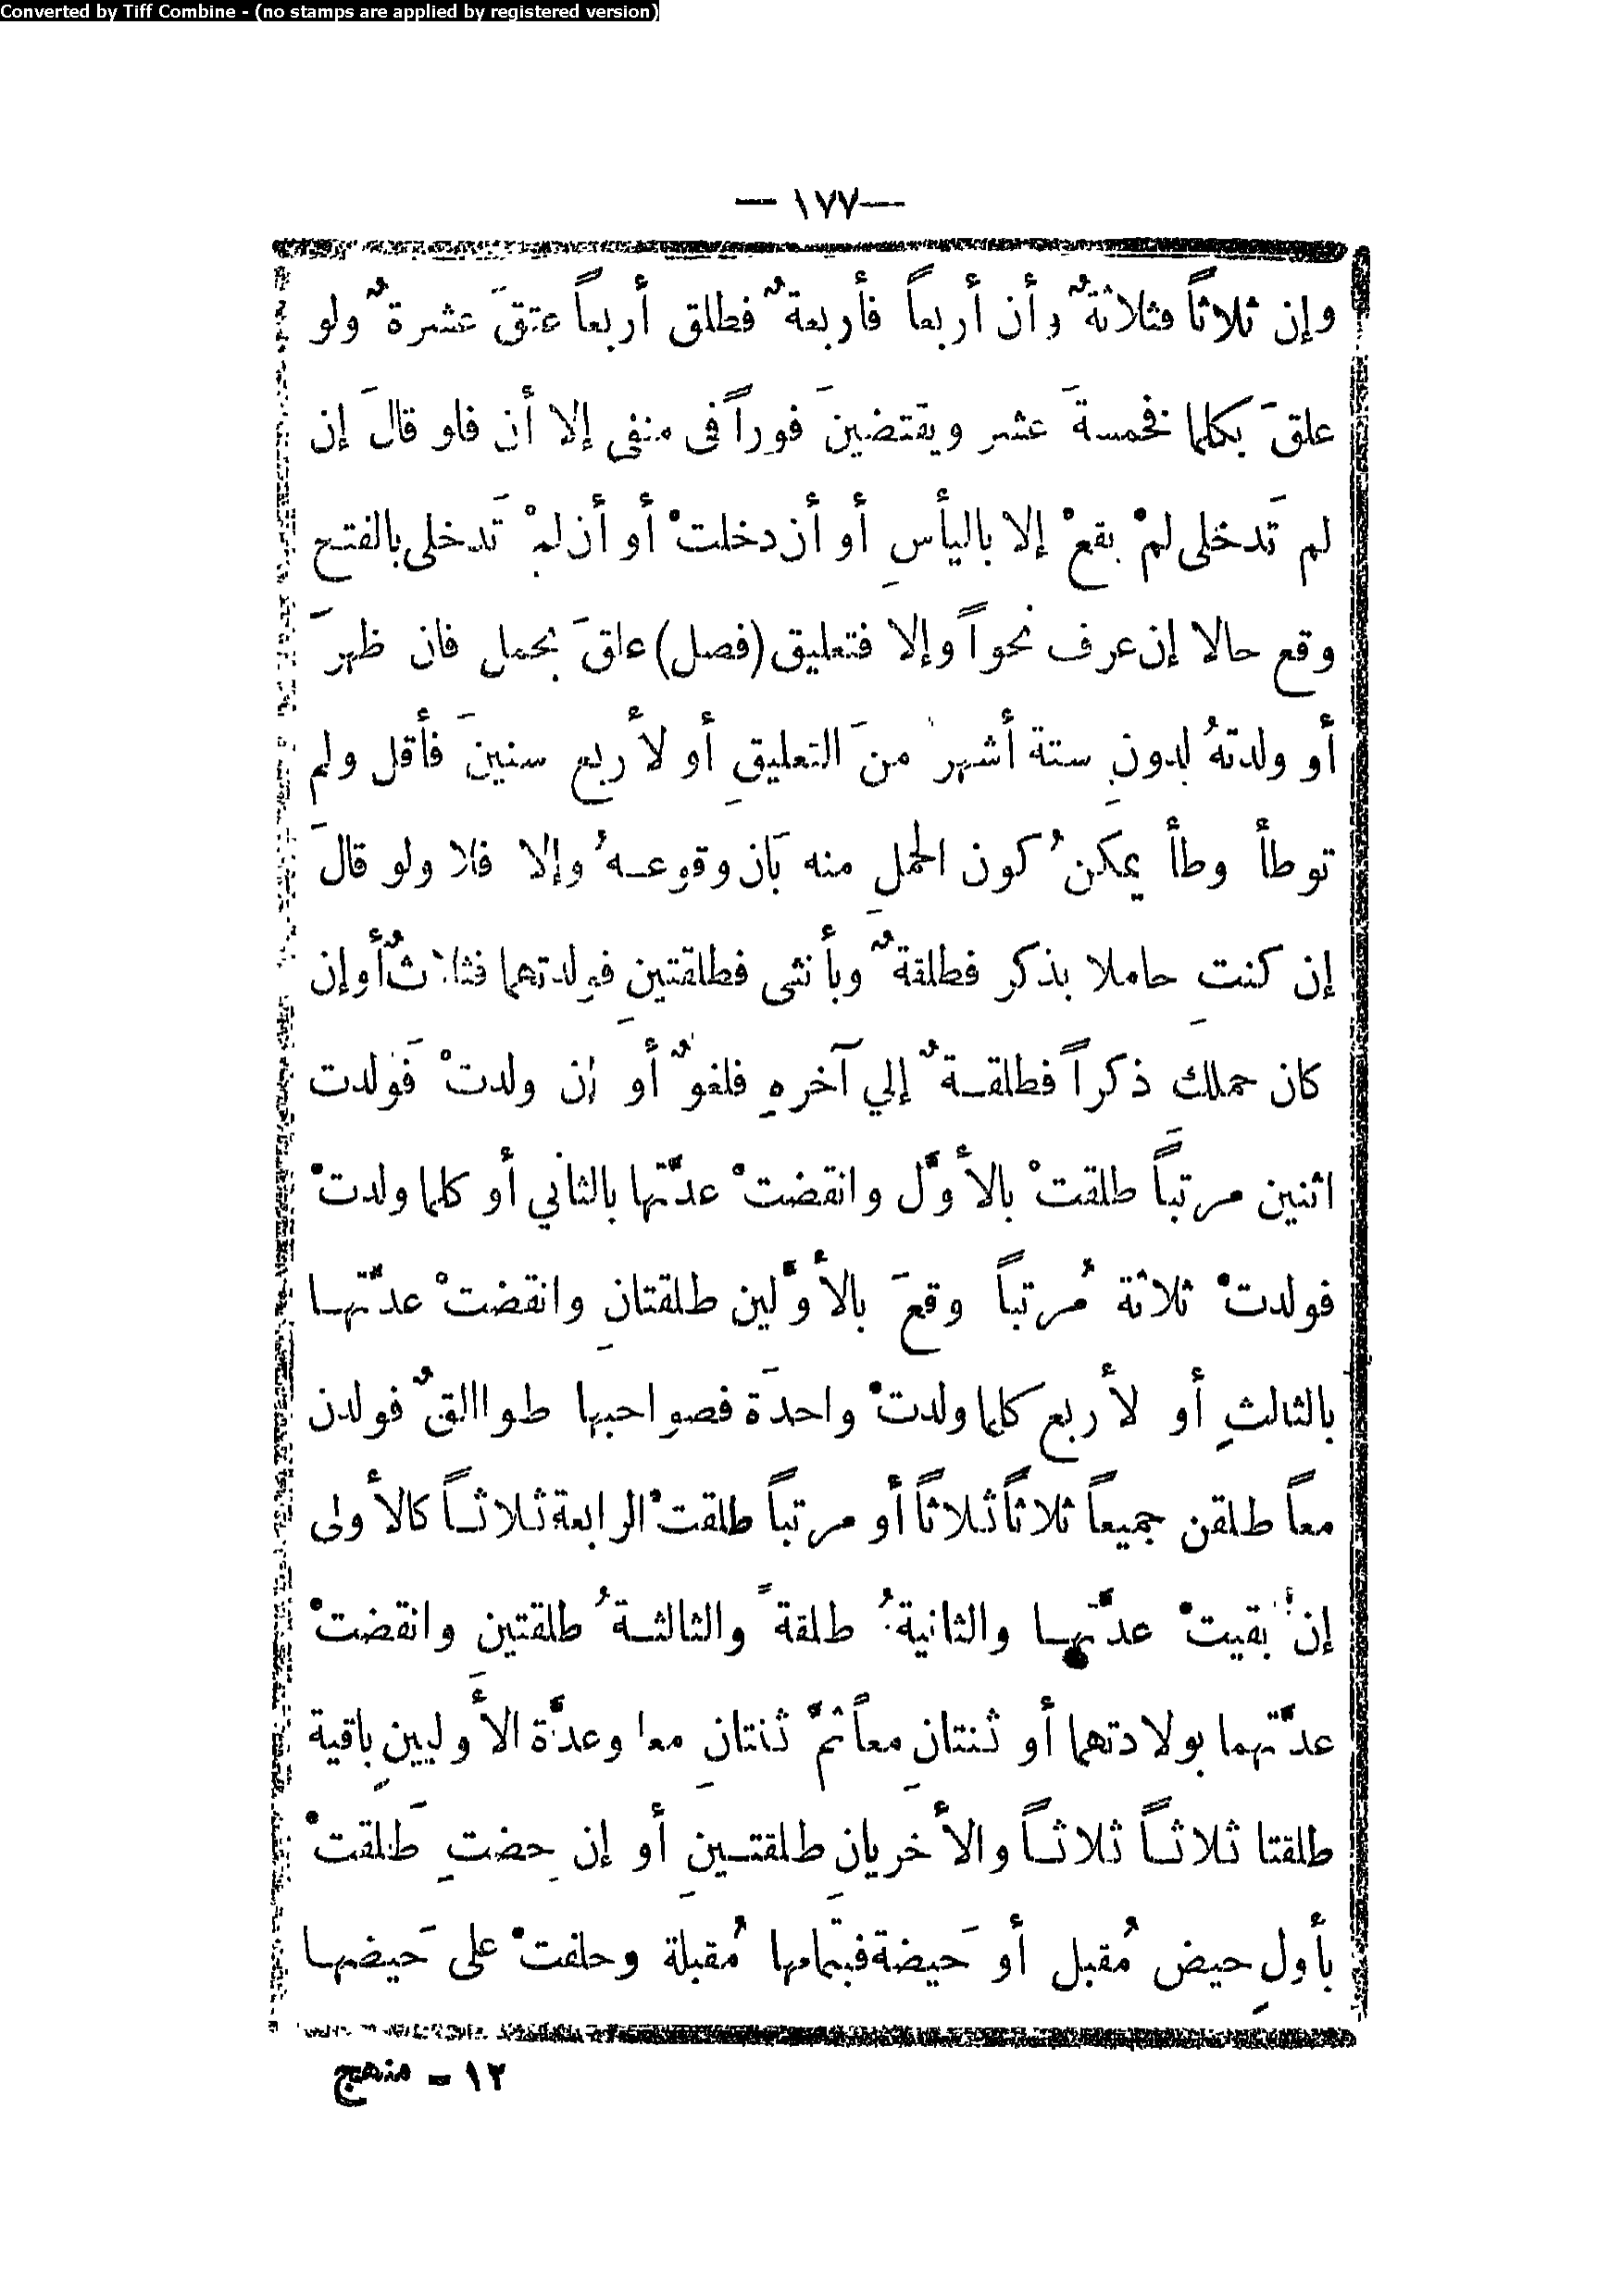 Converted by Tiff Combine - (no stamps are applied by registered version)
— ١٧٧ —
وإن ثلاثاً فثلاثةٌ وأن أربعاً فأربعةٌ فطلق أربعاً عتقَ عشرةٌ ولو
علقَ بكلما فخمسةَ عشر ويقتضينَ فوراً في منفى إلا أن فلو قالَ إن
لم تَدخلى لمْ يقعْ إلا باليأسِ أو أن دخلتْ أو أن لمْ تَدخلى بالفتح
وقع حالا إن عرف نحواً وإلا فتعليق (فصل) علقَ بحمل فان ظهرَ
أو ولدتهُ لدونِ ستة أشهر منَ التعليقِ أو لأربع سنينَ فأقل ولم
توطأ وطأ يمكنُ كون الحملِ منه بَان وقوعهُ وإلا فلا ولو قالَ
إن كنتِ حاملا بذكر فطلقةٌ وبأنثى فطلقتينِ فولدتهما فثلاثٌ أو إن
كان حملك ذكراً فطلقةٌ إلي آخرهِ فلغوٌ أو إن ولدتْ فَولدت
اثنين مرتبَّاً طلقتْ بالأوَّل وانقضتْ عدَّتها بالثاني أو كلما ولدتْ
فولدتْ ثلاثة مُرتباً وقعَ بالأوَّلين طلقتانِ وانقضتْ عدَّتها
بالثالثِ أو لأربع كلما ولدتْ واحدَة فصواحبها طواالقٌ فولدن
معاً طلقن جميعاً ثلاثاً ثلاثاً أو مرتباً طلقتْ الرابعة ثلاثاً كالأولى
إنْ بقيتْ عدَّتها والثانيةُ طلقةً والثالثةُ طلقتين وانقضتْ
عدَّتهما بولادتهما أو ثنتانِ معاً ثمَّ ثنتانِ معا وعدَّة الأَوليينِ باقية
طلقتا ثلاثاً ثلاثاً والأخريانِ طلقتينِ أو إن حِضتِ طَلقتْ
بأولِ حيض مُقبل أو حَيضة فبتمامها مُقبلة وحلفتْ على حَيضها
١٢ - منهج